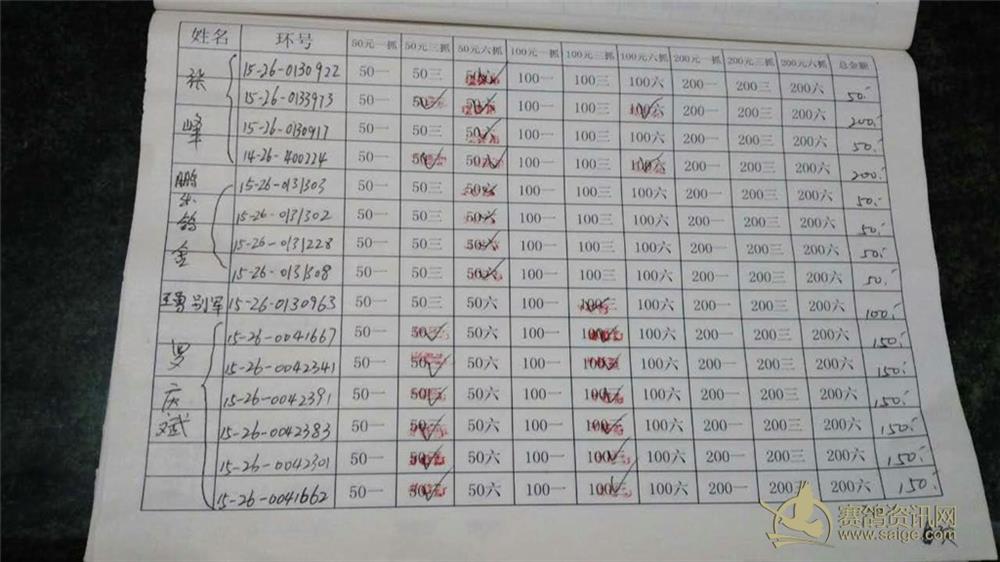 姓名 环号 50元一抓 50元三抓 50元六抓 100元一抓 100元三抓 100元六抓 200元一抓 200元三抓 200元六抓 总金额
张峰 15-26-0130922 50一 50三 50六 100一 100三 100六 200一 200三 200六 50.-
15-26-0133973 50一 50三 50六 100一 100三 100六 200一 200三 200六 200.-
15-26-0130917 50一 50三 50六 100一 100三 100六 200一 200三 200六 50.-
14-26-400224 50一 50三 50六 100一 100三 100六 200一 200三 200六 200.-
鹏 鸽舍 15-26-0131303 50一 50三 50六 100一 100三 100六 200一 200三 200六 50.-
15-26-0131302 50一 50三 50六 100一 100三 100六 200一 200三 200六 50.-
15-26-0131228 50一 50三 50六 100一 100三 100六 200一 200三 200六 50.-
15-26-0131308 50一 50三 50六 100一 100三 100六 200一 200三 200六 50.-
15-26-0130963 50一 50三 50六 100一 100三 100六 200一 200三 200六 100.-
庆斌 15-26-0041667 50一 50三 50六 100一 100三 100六 200一 200三 200六 150.-
15-26-0042341 50一 50三 50六 100一 100三 100六 200一 200三 200六 150.-
15-26-0042391 50一 50三 50六 100一 100三 100六 200一 200三 200六 150.-
15-26-0042383 50一 50三 50六 100一 100三 100六 200一 200三 200六 150.-
15-26-0042301 50一 50三 50六 100一 100三 100六 200一 200三 200六 150.-
15-26-0041662 50一 50三 50六 100一 100三 100六 200一 200三 200六 150.-
赛鸽资讯网
www.saige.com